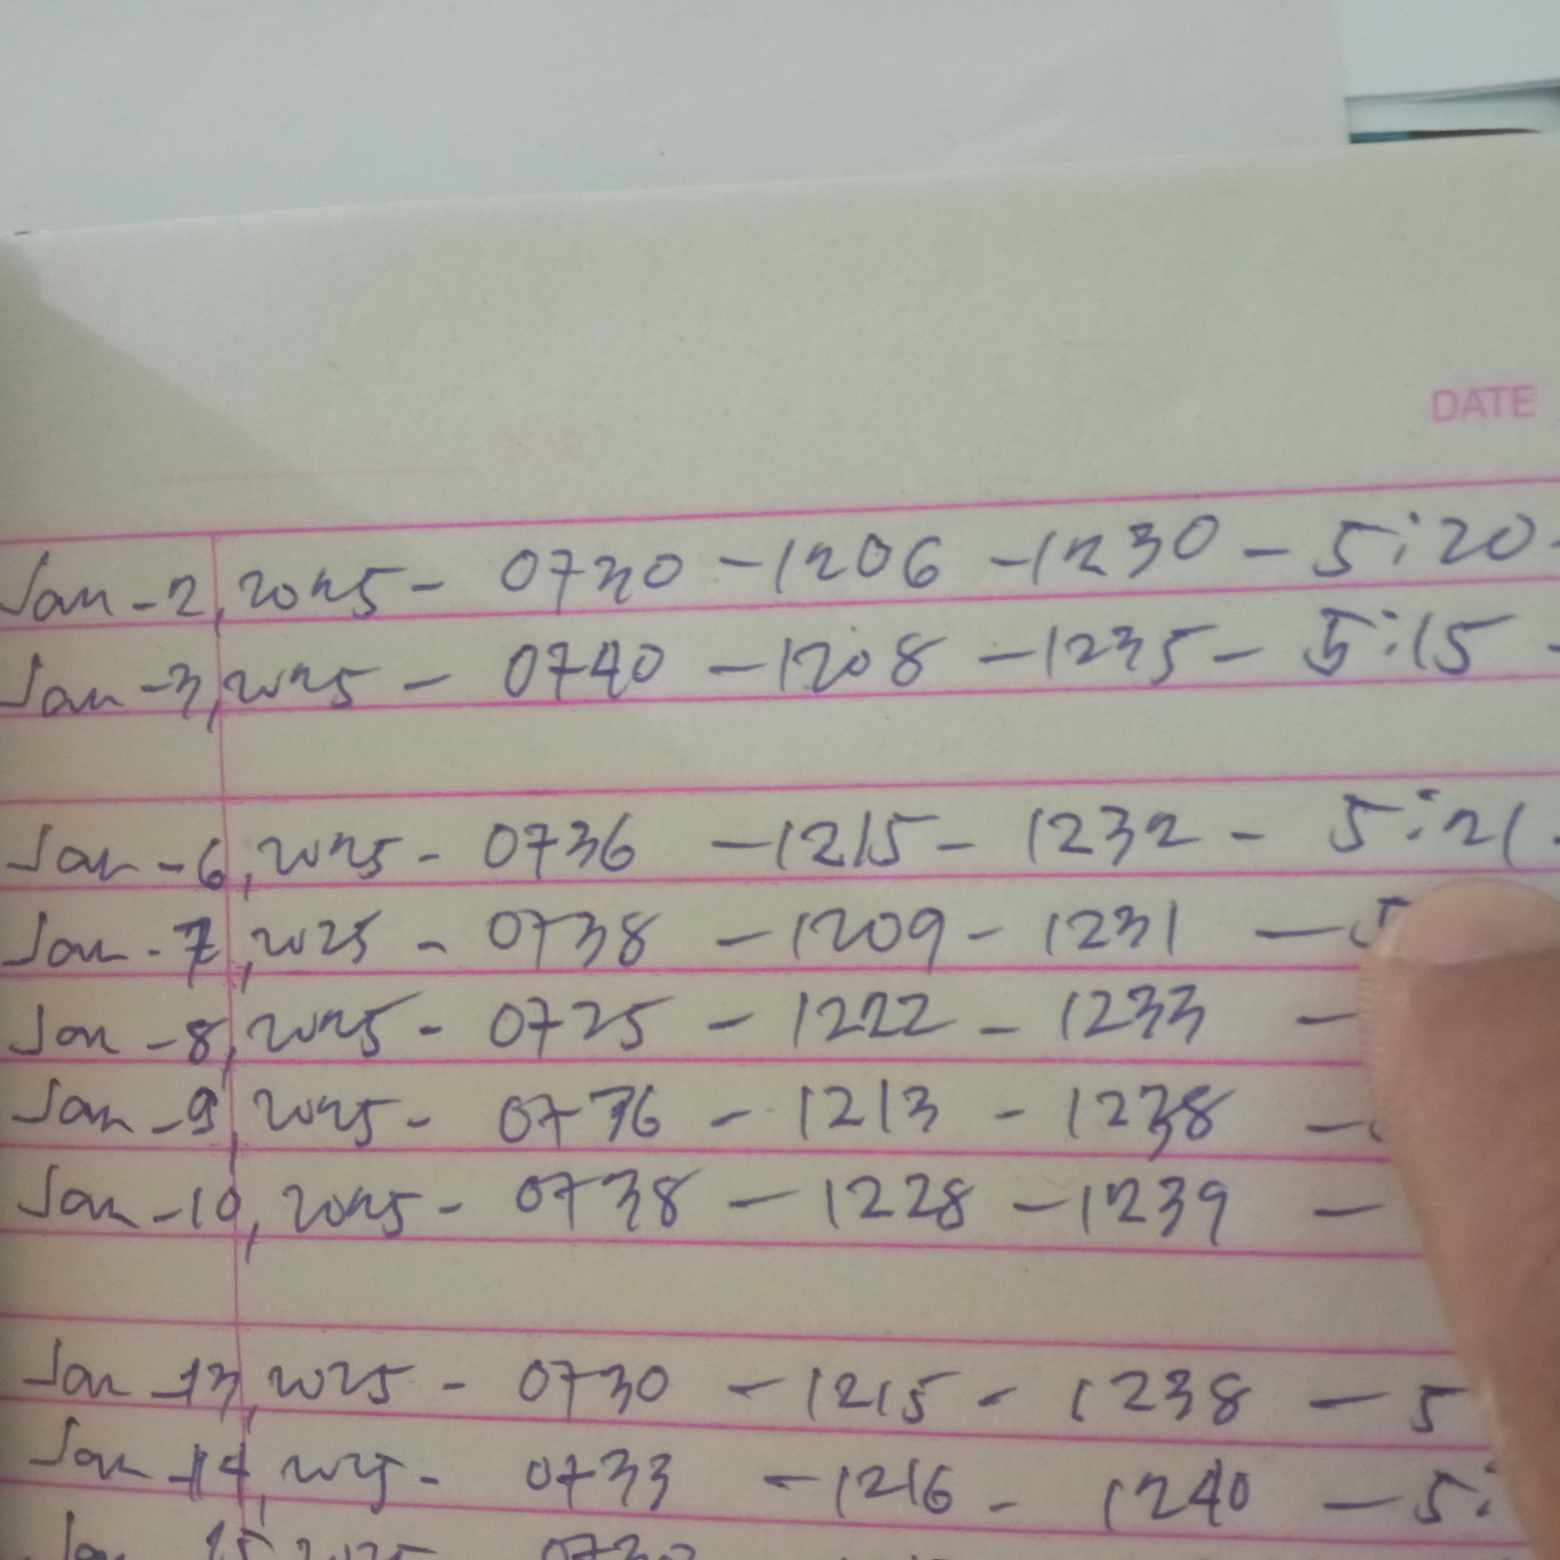 DATE
Jan-2, 2025 - 0730 - 1206 - 1230 - 5:20 -
Jan-3, 2025 - 0740 - 1208 - 1235 - 5:15 -
Jan-6, 2025 - 0736 - 1215 - 1232 - 5:21 -
Jan-7, 2025 - 0738 - 1209 - 1231 - 5
Jan-8, 2025 - 0725 - 1222 - 1233 -
Jan-9, 2025 - 0736 - 1213 - 1238 -
Jan-10, 2025 - 0738 - 1228 - 1239 -
Jan-13, 2025 - 0730 - 1215 - 1238 - 5
Jan-14, 2025 - 0733 - 1216 - 1240 - 5:
Jan 15, 2025